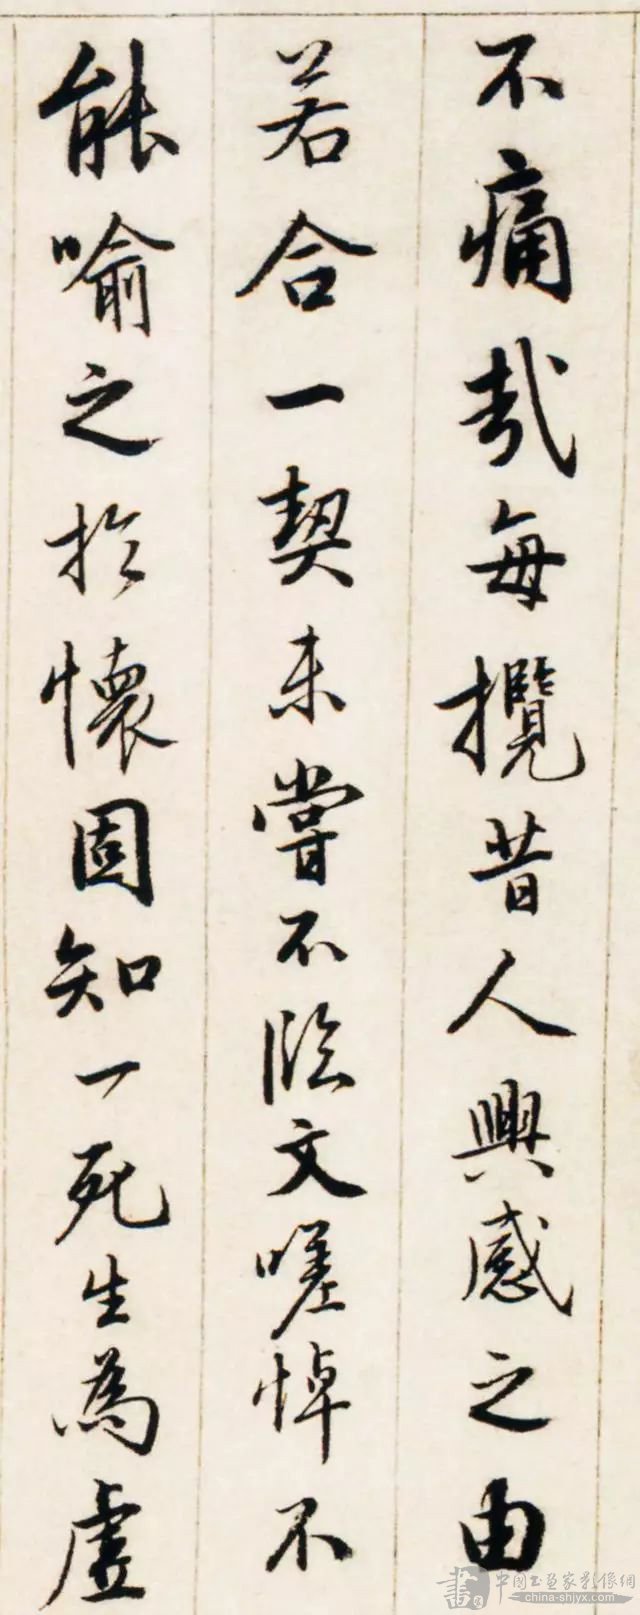 不痛哉每攬昔人興感之由
若合一契未嘗不臨文嗟悼不
能喻之於懷固知一死生為虛
中國書画家影像網
china-shjyx.com